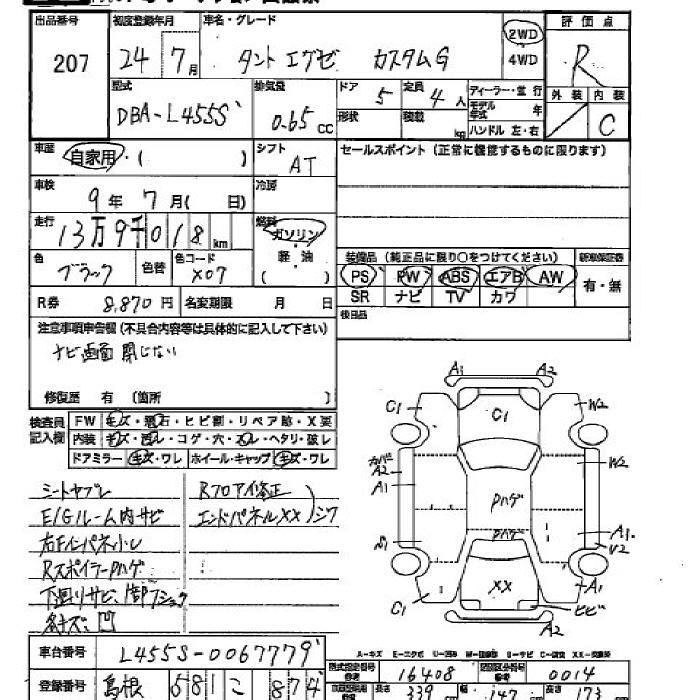 出品番号 初度登録年月 車名・グレード 2WD 4WD 評価点
207 24年 7月 タント エグゼ カスタムG R
型式 排気量 ドア 定員 ディーラー・並行 外装 内装
DBA-L455S 0.65 CC 5 4人 モデル年式 年 C
形状 積載 kg ハンドル 左・右
車歴 自家用・( ) シフト AT セールスポイント (正常に機能するものに限ります)
車検 9年 7月( 日) 冷房
走行 13万9千018km 燃料 ガソリン 軽・油 ( )
装備品 (純正品に限り○をつけてください) 新車保証書
色 ブラック 色替 色コード X07 PS PW ABS エアB AW 有・無
SR ナビ TV カワ
R券 8,870円 名変期限 月 日 後日品
注意事項申告欄 (不具合内容等は具体的に記入して下さい)
ナビ画面 閉じない
修復歴 有 (箇所 )
検査員記入欄 FW キズ・飛石・ヒビ割・リペア跡・X要
内装 キズ・汚レ・コゲ・穴・スレ・ヘタリ・破レ
ドアミラー キズ・ワレ ホイール・キャップ キズ・ワレ
シートヤブレ Rフロアイ修正
E/Gルーム内サビ エンドパネルXX シワ
右Fインパネ小レ
RスポイラーPハゲ
下廻りサビ、
各キズ、凹
A1 A2
C1 C1 W2
カバー A2 A1 W2
Pハゲ
Pハゲ
S1 A1 V2
XX A1
C1 ヒビ
A2
A-キズ E-エクボ U-凹み W-補修跡 S-サビ C-腐食 XX-交換済
車台番号 L455S-0067779
型式指定番号 16408 類別区分番号 0014
登録番号 島根 581 こ 874
長さ 339 cm 幅 147 cm 高さ 173